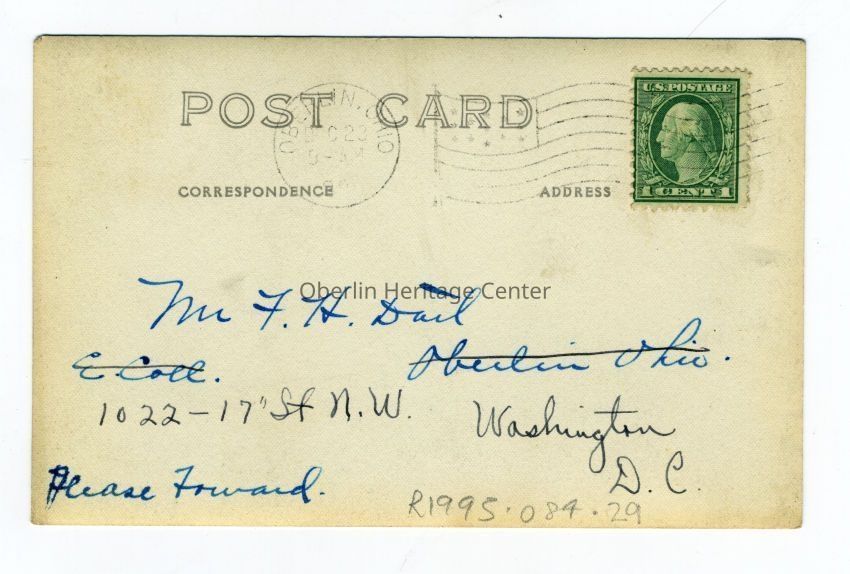 POST CARD
OBERLIN, OHIO
DEC 23
9-AM
U.S. POSTAGE
1 CENT 1
CORRESPONDENCE
ADDRESS
Oberlin Heritage Center
Mr F. H. Dart
E. Coll.
Oberlin Ohio.
1022-17" St N.W.
Washington
D.C.
Please Forward.
R1995.084.29